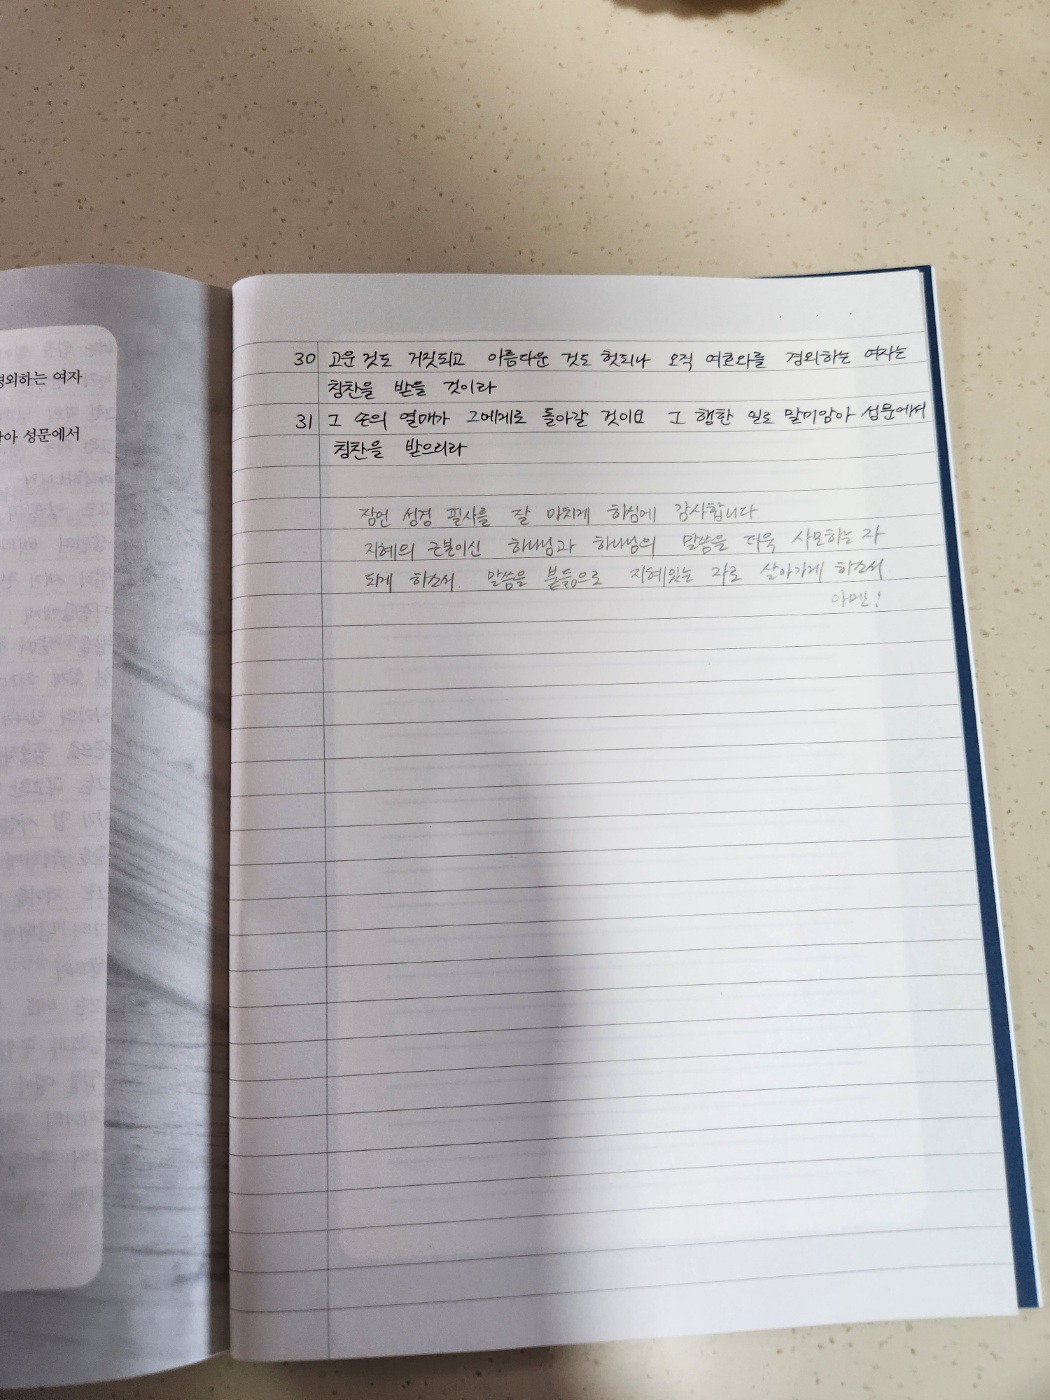 경외하는 여자
아 성문에서
30 고운 것도 거짓되고 아름다운 것도 헛되나 오직 여호와를 경외하는 여자는
칭찬을 받을 것이라
31 그 손의 열매가 그에게로 돌아갈 것이요 그 행한 일로 말미암아 성문에서
칭찬을 받으리라
잠언 성경 필사를 잘 마치게 하심에 감사합니다
지혜의 근본이신 하나님과 하나님의 말씀을 더욱 사모하는 자
되게 하소서 말씀을 붙듦으로 지혜있는 자로 살아가게 하소서
아멘!